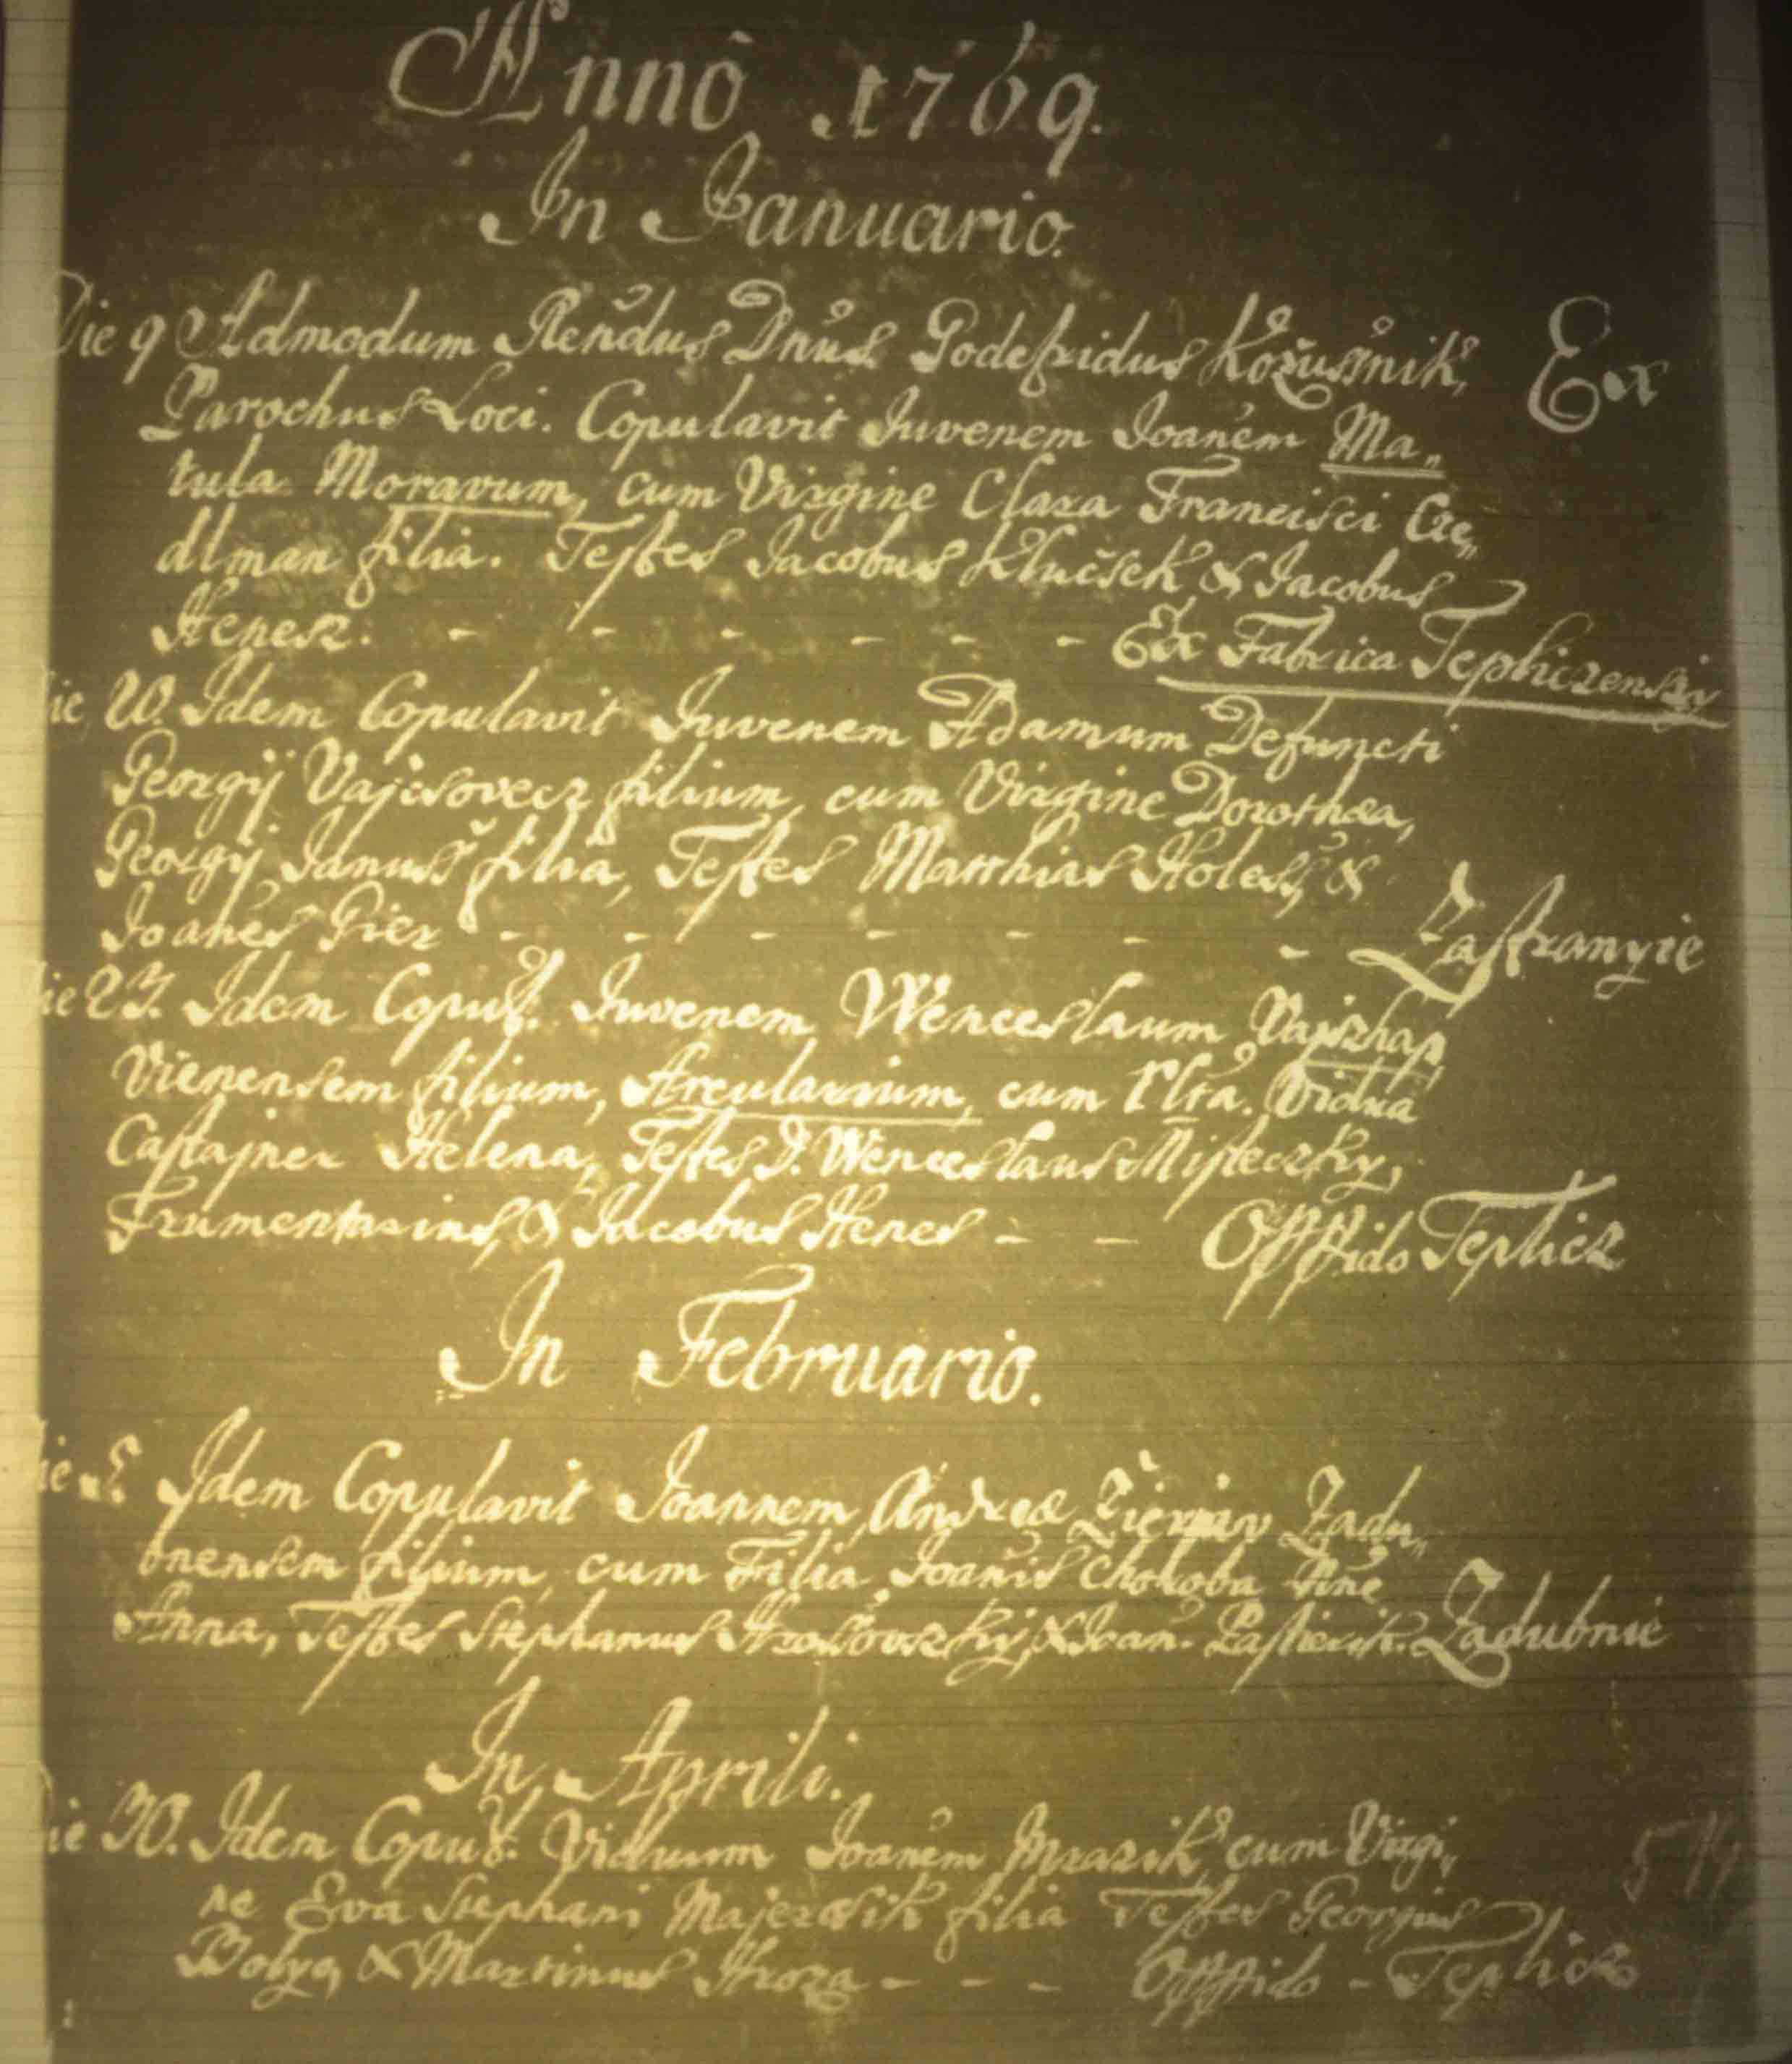 Anno 1769.
In Januario.
Die 9 Admodum Rendus Dnus Godefridus Kožussnik, Ex
Parochus Loci. Copulavit Juvenem Joanem Ma„
tula Moravum, cum Virgine Clara Francisci Cze„
dlman filia. Testes Jacobus Klucsek & Jacobus
Henesz. - - - - - - Ex Fabrica Tepliczensi
Die 20. Idem Copulavit Juvenem Adamum Defuncti
Georgij filium, cum Virgine Dorothæa,
Georgij Januss filia, Testes Matthias Holess, &
Joanes Gier - - - - - - - Zastranyie
Die 23. Idem Copul. Juvenem Wenceslaum
Vienensem filium, Arcularium, cum Vidua
Castajner Helena, Testes D. Wenceslaus Misteczky,
Frumentarius, & Jacobus Henes - - Oppido Teplicz
In Februario.
Die 5. Idem Copulavit Joannem Andreæ Zadu„
bnensem filium, cum Filia Joanis Chohoba
Anna, Testes Stephanus & Joan. Zadubnie
In Aprili.
Die 30. Idem Copul. Viduum Joanem Mrazik cum Virgi„
ne Eva Stephani Majercsik filia Testes Georgius
& Martinus Hroza - - - Oppido - Teplicz